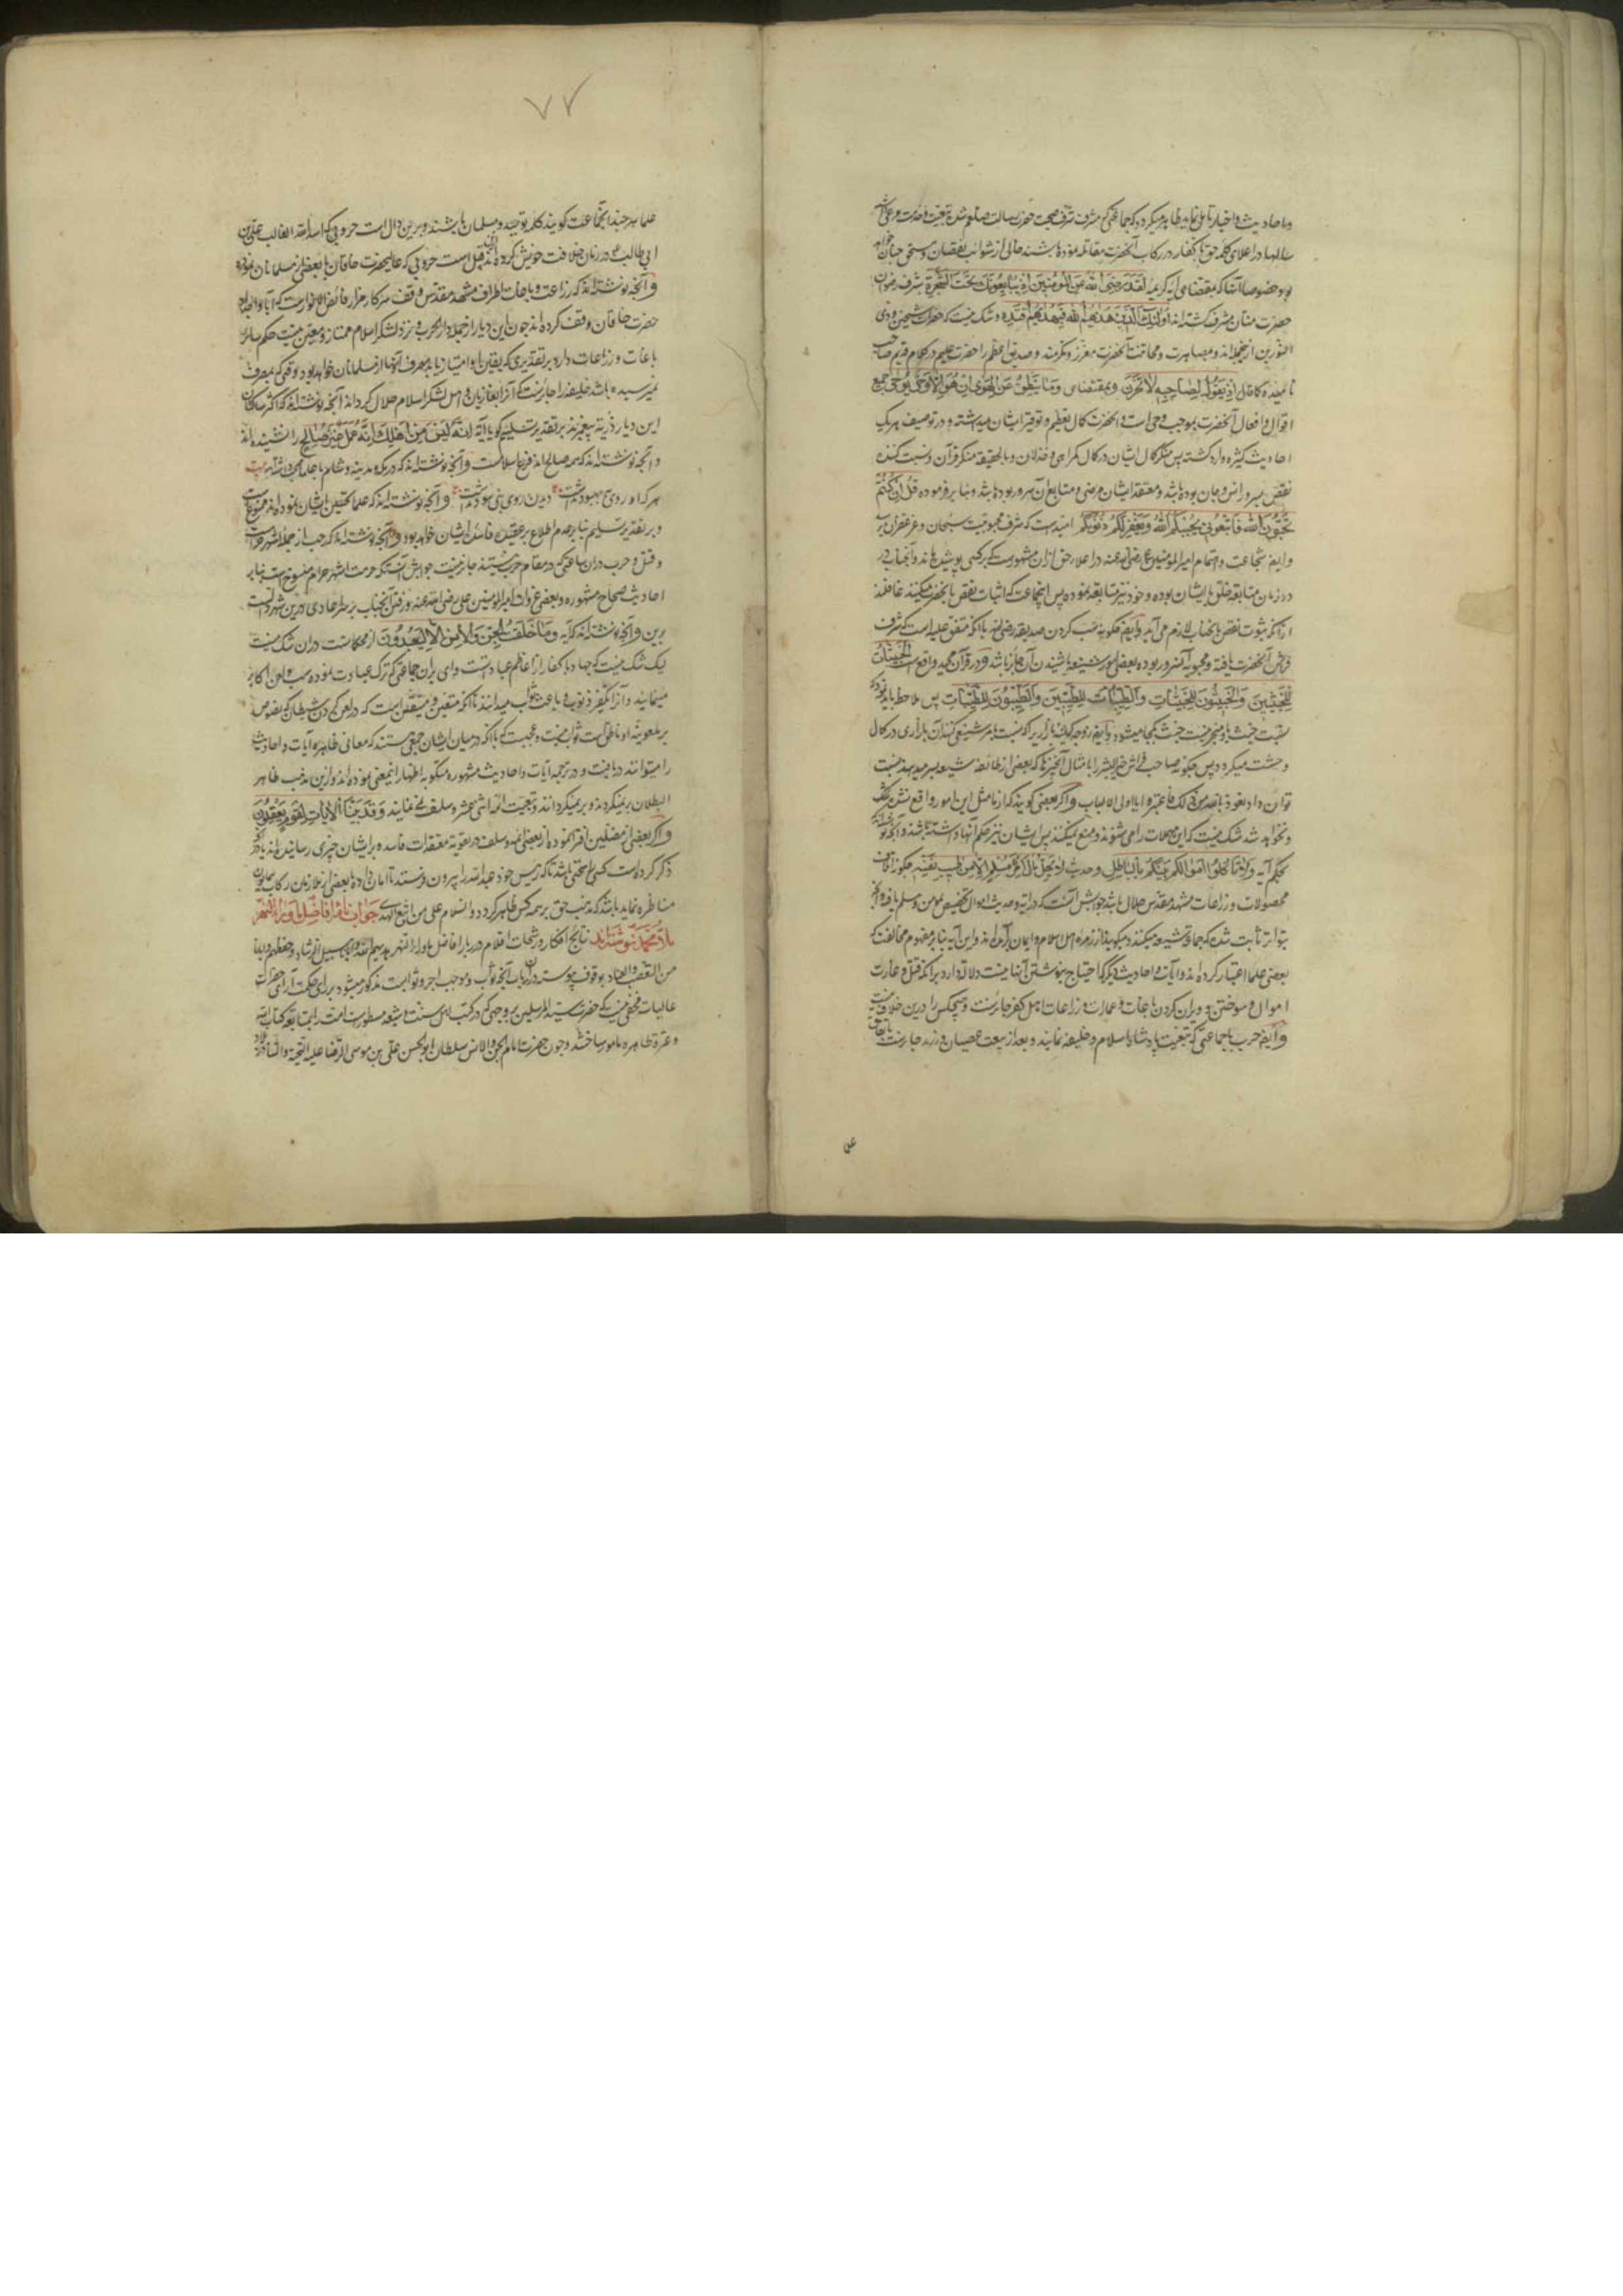 و احادیث و اخبار تامل نماید ظاهر میکردد که جماعتی که مشرف بشرف صحبت حضرت رسالت صلعم شده
سالها در اعلای کلمه حق با کفار در رکاب آنحضرت مقاتله نموده باشند خالی از شوائب نقصان و مستحق جنان
بود خصوصا آنها که بمقتضای آیه کریمه لَقَدْ رَضِیَ اللّهُ عَنِ الْمُؤْمِنِینَ اِذْ یُبَایِعُونَكَ تَحْتَ الشَّجَرَةِ بشرف رضوان
حضرت منان مشرف کشته اند اُولٰئِكَ الَّذِینَ هَدَیهُمُ اللّهُ فَبِهُدَیهُمُ اقْتَدِهْ و شک نیست که حضرات شیخین و ذی
النورین ازینجمله اند و بمصاهرت و مخاتنت آنحضرت معزز و مکرمند و صدیق اعظم را حضرت علیم در کلام قدیم صاحب
نامیده کما قال اِذْ یَقُولُ لِصَاحِبِهِ لَا تَحْزَنْ و بمقتضای وَمَا یَنْطِقُ عَنِ الْهَوَی اِنْ هُوَ اِلَّا وَحْیٌ یُوحَی جمیع
اقوال و افعال آنحضرت بموجب وحی است و آنحضرت کمال تعظیم و توقیر ایشان میداشته و در توصیف هر یک
احادیث کثیره وارد کشته پس منکر کمال ایشان در کمال کمراهی و خذلان و بالحقیقه منکر قرآن و نسبت کننده
نقص بسرور انس و جان بوده باشد و معتقد ایشان مرضی و متابع آن سرور بوده باشد و بنابر فرموده قُلْ اِنْ کُنْتُمْ
تُحِبُّونَ اللّهَ فَاتَّبِعُونِی یُحْبِبْکُمُ اللّهُ وَیَغْفِرْ لَکُمْ ذُنُوبَکُمْ امیدست که بشرف محبوبیت سبحان و عز غفران
و ایضا شجاعت و اهتمام امیر المومنین علی رضی الله عنه در اعلاء حق ازان مشهورست که بر کسی پوشیده ماند و آنجناب در
در زمان متابعة خلق با ایشان بوده و خود نیز متابعة نموده پس اینجماعت که اثبات نقص بآنحضرات میکنند غافلند
ازانکه ثبوت نقص بآنجناب لازم می آید و ایضا حکونه سب کردن صدیقه رضی الله عنها با آنکه متفق علیه است که بشرف
فراش آنحضرت یافته و محبوبه آنسرور بوده بعضی امور شنیعه باشیدن آن جایز باشد و در قرآن مجید واقع است اَلْخَبِیثَاتُ
لِلْخَبِیثِینَ وَالْخَبِیثُونَ لِلْخَبِیثَاتِ وَالطَّیِّبَاتُ لِلطَّیِّبِینَ وَالطَّیِّبُونَ لِلطَّیِّبَاتِ پس ملاحظه باید نمود که
نسبت خبث باو منجر نسبت خبث بکجا میشود
وحشت میکردد پس حکونه صاحب فراش خیر البشر را بامثال آنچیزها که بعضی از طائفه شیعه بسر میدهند نسبت
توان داد نعوذ بالله من ذلک فاعتبروا یا اولی الالباب و اگر بعضی کویند که از ما مثل این امور واقع نشده
و نخواهد شد شک نیست که این جهلات را می شنوند و منع نمیکنند پس ایشان نیز حکم آنها داشته باشند و آنچه
بحکم آیه وَلَا تَأْکُلُوا اَمْوَالَکُمْ بَیْنَکُمْ بِالْبَاطِلِ و حدیث لَا یَحِلُّ مَالُ امْرِئٍ مُسْلِمٍ اِلَّا مِنْ طِیبِ نَفْسِهِ حکونه
محصولات و زراعات مشهد مقدس حلال باشد جوابش آنست که در آیه و حدیث اموال تخصیص بمومن و مسلم یافته و آنچه
بتواتر ثابت شده که جماعت شیعه میکنند و میکویند از زمره اهل اسلام و ایمان برآمده اند و این آیه بنابر مفهوم مخالفت که
بعضی علما اعتبار کرده اند و آیات و احادیث دیگر که احتیاج بنوشتن آنها نیست دلالت دارد برآنکه قتل و غارت
اموال و سوختن و ویران کردن باغات و عمارات و زراعات اهل کفر جائزست و هیچکس را درین خلاف نیست
و ایضا حرب با جماعتی که تبعیت پادشاه اسلام و خلیفه نمایند و بعد از بیعت عصیان ورزند جایزست باتفاق
علما
۷۷
علما هر چند آنجماعت کوینده کلمه توحید و مسلمان باشند و برین دال است حروبی که اسد الله الغالب علی بن
ابی طالب در زمان خلافت خویش کرده اند و ازین قبیل است حروبی که عالیحضرت خاقان با بعضی از مسلمانان نموده
و آنچه نوشته اند که زراعت و باغات اطراف مشهد مقدس وقف سرکار مزار فائض الانوارست که آبا و اجداد
حضرت خاقان وقف کرده اند چون این دیار از جمله دار الحرب و نزد لشکر اسلام ممتاز و معین نیست حکم سایر
باغات و زراعات دارد بر تقدیری که یقین باو امتیاز یابد مصرف آنها از مسلمانان خواهد بود و وقتی که بمصرف
نمیرسیده باشد خلیفه را جایزست که آنرا بغازیان و اهل لشکر اسلام حلال کرداند آنچه نوشته اند که اکثر ساکنان
این دیار ذریّه پیغمبرند بر تقدیر تسلیم کویا آیه اِنَّهُ لَیْسَ مِنْ اَهْلِكَ اِنَّهُ عَمَلٌ غَیْرُ صَالِحٍ را نشنیده اند
و آنچه نوشته اند که همه صالح اند فرع اسلامست و آنچه نوشته اند که در مکه و مدینه و شام با علما بیت
هر کرا روی بهبود نداشت دیدن روی نبی سود نداشت و آنچه نوشته اند که علما تحسین ایشان نموده اند ممنوع است
و بر تقدیر تسلیم بنابر عدم اطلاع بر عقیده فاسد ایشان خواهد بود و آنچه نوشته اند که رجب از جمله اشهر حرم است
و قتل و حرب دران با جماعتی که در مقام حرب نیستند جایز نیست جوابش آنست که حرمت اشهر حرام منسوخ است بنابر
احادیث صحاح مشهوره و بعضی غزوات امیر المومنین علی رضی الله عنه و رفتن آنجناب بر سر اعادی درین شهر دالست
برین و آنچه نوشته اند که آیه وَمَا خَلَقْتُ الْجِنَّ وَالْاِنْسَ اِلَّا لِیَعْبُدُونِ از محکماتست دران شک نیست
لیک شک نیست که جهاد با کفار از اعاظم عبادتست و وای بران جماعتی که ترک عبادت نموده سب و لعن اکابر
مینمایند و آنرا مکفر ذنوب و باعث ثواب میدانند با آنکه متفقین و متیقن است که در لعن کردن شیطان که نصوص
بر ملعونیة او ناطق است ثواب نیست و عجبست که با آنکه در میان ایشان جمعی هستند که معانی ظاهره آیات و احادیث
را میتوانند دریافت و در ترجمه آیات و احادیث مشهوره میکوبه اظهار اینمعنی نموده اند و ازین مذهب ظاهر
البطلان برنمیکردند و برنمیکردانند و تبعیت ائمه اثنی عشر و سلف نمی نمایند وَقَدْ بَیَّنَّا الْاٰیَاتِ لِقَوْمٍ یَعْقِلُونَ
و اگر بعضی از مضلین افترا نموده از بعضی ائمه و سلف در تقویة معتقدات فاسده برایشان چیزی رسانیده اند
ذکر کرده است کسی را سخنی باشد باید که رئیس خود عبد الله را بیرون فرستند تا امان داده بعضی از ملازمان رکاب همایون
مناظره نماید باشد که مذهب حق بر همه کس ظاهر کردد و السلام علی من اتبع الهدی جواب نامه افاضل ماوراء النهر
ملا محمد نوشته اند نتایج افکار و رشحات اقلام دربار افاضل ماوراء النهر هدیهم الله و ایانا سبیل الرشاد و حفظهم و ایانا
من التعصب و العناد بوقوف پیوسته در آن باب آنچه صواب و موجب اجر و ثوابست مذکور میشود بر رای حکمت آرای حضرات
عالیات مخفی نیست که حضرت سید المرسلین بروجهی که در کتب اهل سنت و شیعه مسطورست امت را بمتابعة کتاب الله
و عترة طاهره مامور ساختند و چون حضرت امام الجن و الانس سلطان ابو الحسن علی بن موسی الرضا علیه التحیة و الثنا